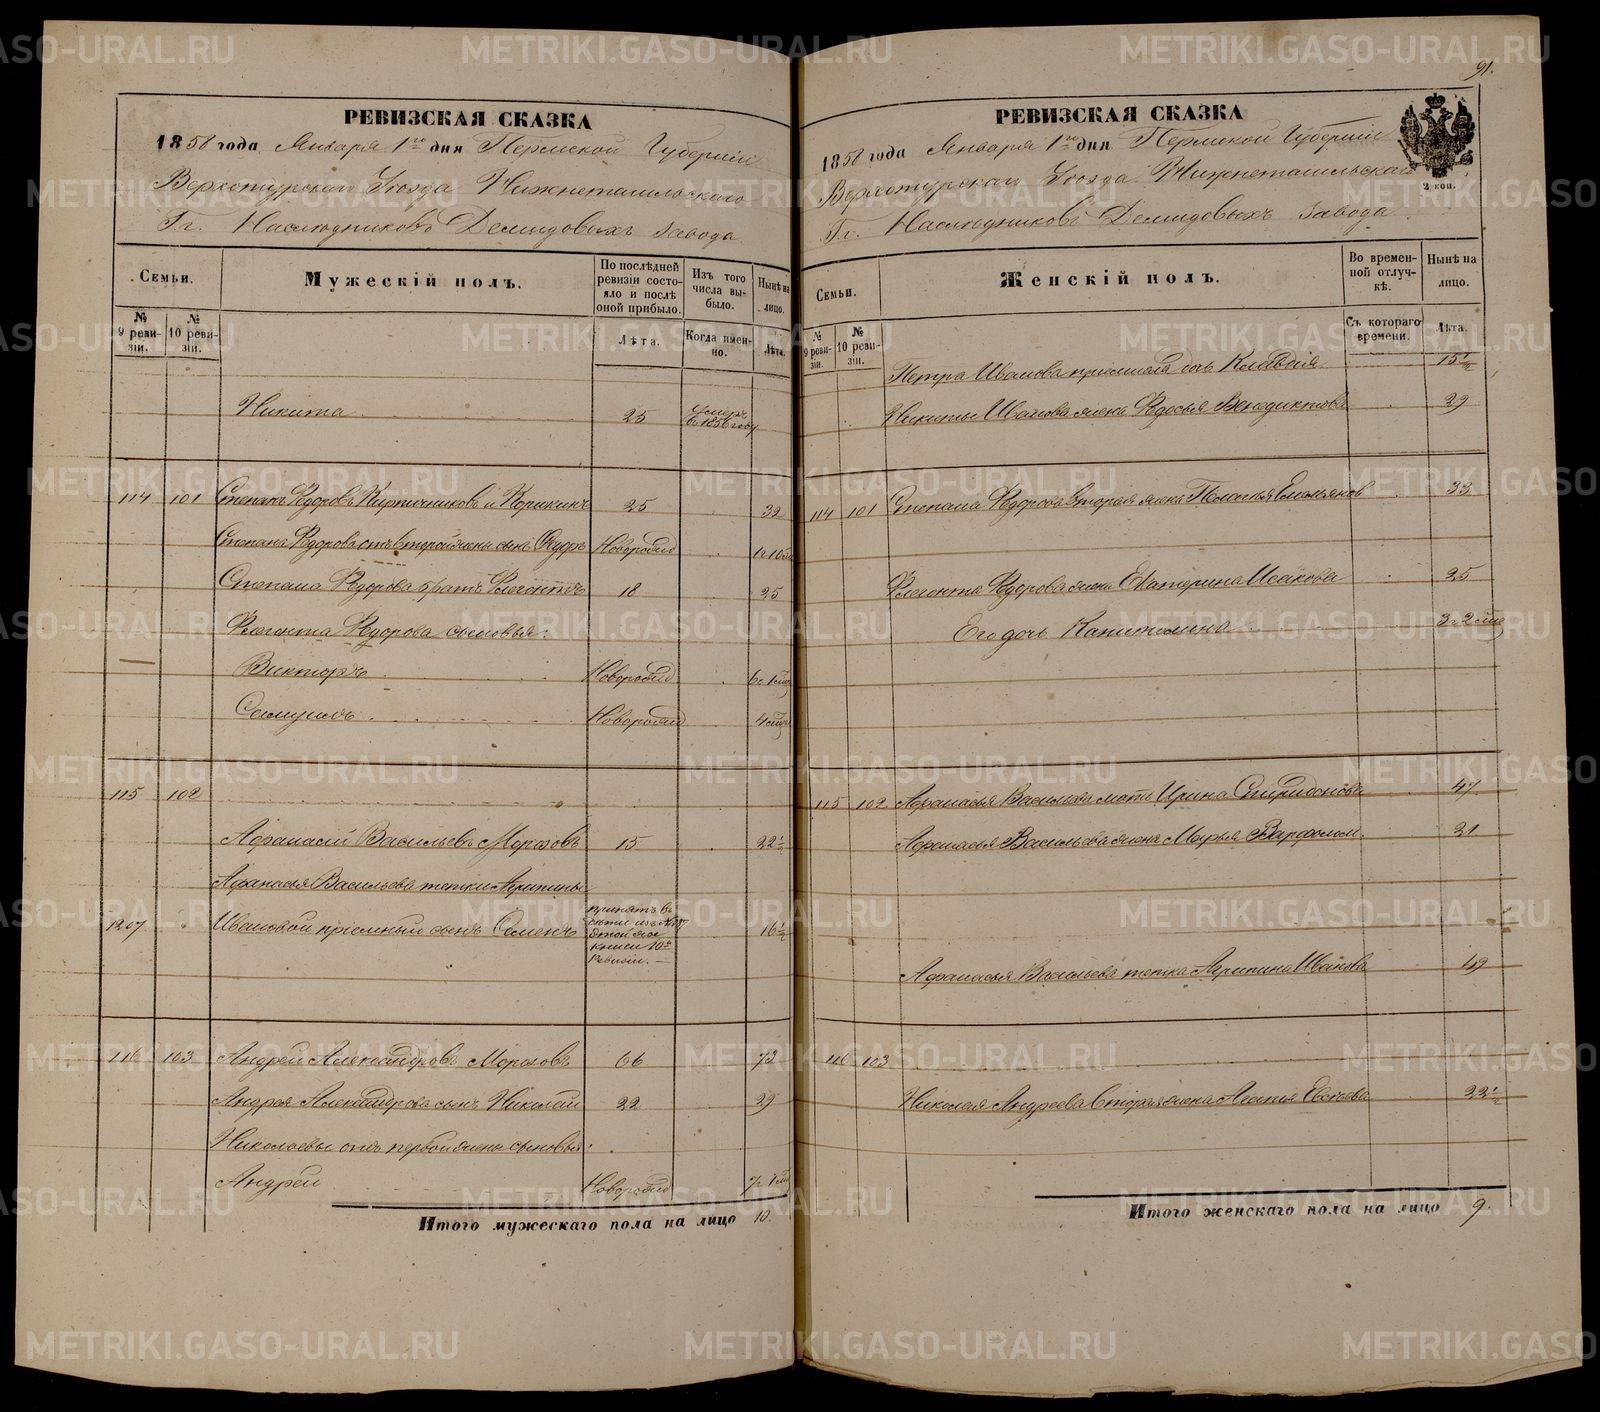 91.
РЕВИЗСКАЯ СКАЗКА
1858 года Января 1го дня Пермской Губернии
Верхотурскаго Уезда Нижнетагильскаго
Гг. Наследниковъ Демидовыхъ завода
Семьи.
Мужескій полъ.
По послѣдней ревизіи состояло и послѣ оной прибыло.
Изъ того числа выбыло.
Нынѣ на лицо.
№ 9 ревизіи.
№ 10 ревизіи.
Лѣта.
Когда именно.
Лѣта.
Никита 25 умеръ въ 1856 году
114 101 Степанъ Федоровъ Кирпичниковъ и Корякинъ 25 32
Степана Федорова отъ второй жены сынъ Федоръ Новорожд 1 г 10 мц
Степана Федорова братъ Флегонтъ 18 25
Флегонта Федорова сыновья:
Викторъ Новорожд 6 г 1 мц
Самуилъ Новорожд 4 мц
115 102
Афанасій Васильевъ Морозовъ 15 22 1/2
Афанасья Васильева тетки Агрипины
1207 Ивановой пріемный сынъ Семенъ принятъ въ семью из этой же книги 10й Ревизіи. 16 1/2
116 103 Андрей Александровъ Морозовъ 66 73
Андрея Александрова сынъ Николай 22 29
Николаевы отъ первой жены сыновья:
Андрей Новорожд 7 г 1 мц
Итого мужескаго пола на лицо 10.
РЕВИЗСКАЯ СКАЗКА
1858 года Января 1го дня Пермской Губерніи
Верхотурскаго Уезда Нижнетагильскаго
Гг. Наследниковъ Демидовыхъ завода
2 коп.
Семьи.
Женскій полъ.
Во временной отлучкѣ.
Нынѣ на лицо.
№ 9 ревизіи.
№ 10 ревизіи.
Съ котораго времени.
Лѣта.
Петра Иванова дочь Клавдія 15 1/2
Никиты Иванова жена Федосья Венедиктова 29
114 101 Степана Федорова вторая жена Пелагея Емельянов 33
Флегонта Федорова жена Екатерина Исакова 25
Его дочь Капитолина 3 г 2 мц
115 102 Афанасья Васильева мать Ирина Спиридонова 47
Афанасья Васильева жена Марья Варфолом. 21
Афанасья Васильева тетка Агрипина Иванова 49
116 103
Николая Андреева вторая жена Агапия 22 1/2
Итого женскаго пола на лицо 9.
METRIKI.GASO-URAL.RU